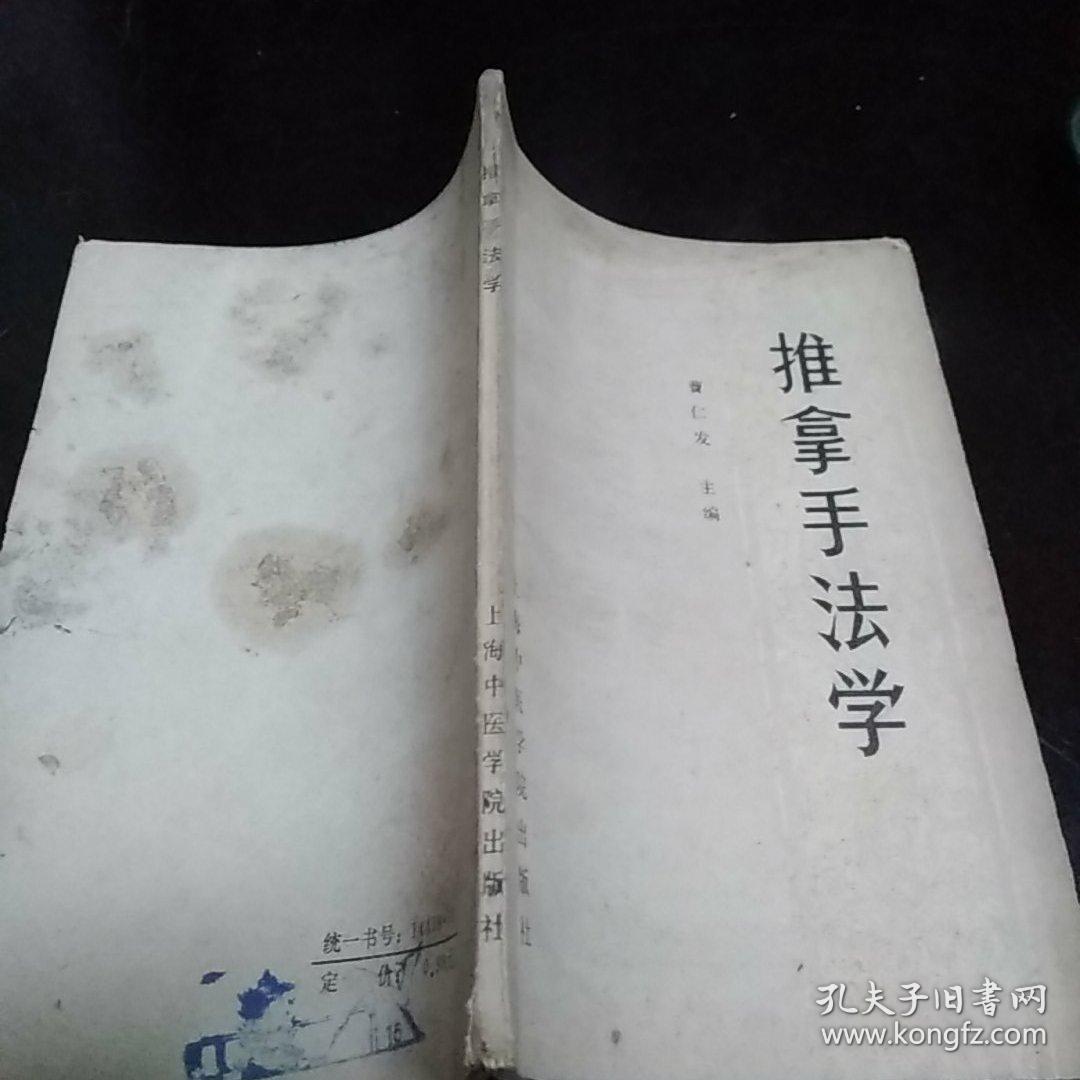 推拿手法学
曹仁发 主编
推拿手法学
上海中医学院出版社
统一书号:
定 价
孔夫子旧书网
www.kongfz.com